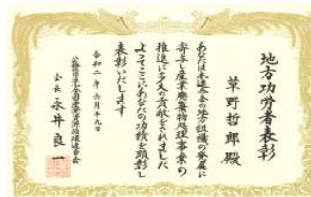 地方功労者表彰
草野哲郎殿
あなたは本連合会の地方組織の発展に
寄与し産業廃棄物処理事業の
推進に多大の貢献をされました
よってここにあなたの功績を顕彰し
表彰いたします
令和二年六月十九日
公益社団法人全国産業資源循環連合会
会長 永井良一